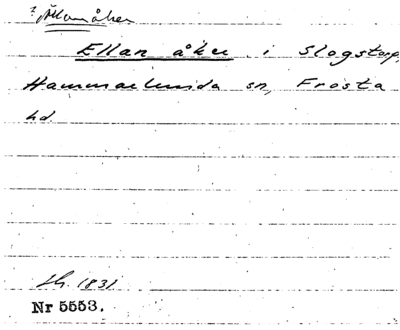 ? Ällanåker
Ellan åker i Slogstorp,
Hammarlunda sn, Frosta
hd.
Lh. 1831
Nr 5553.